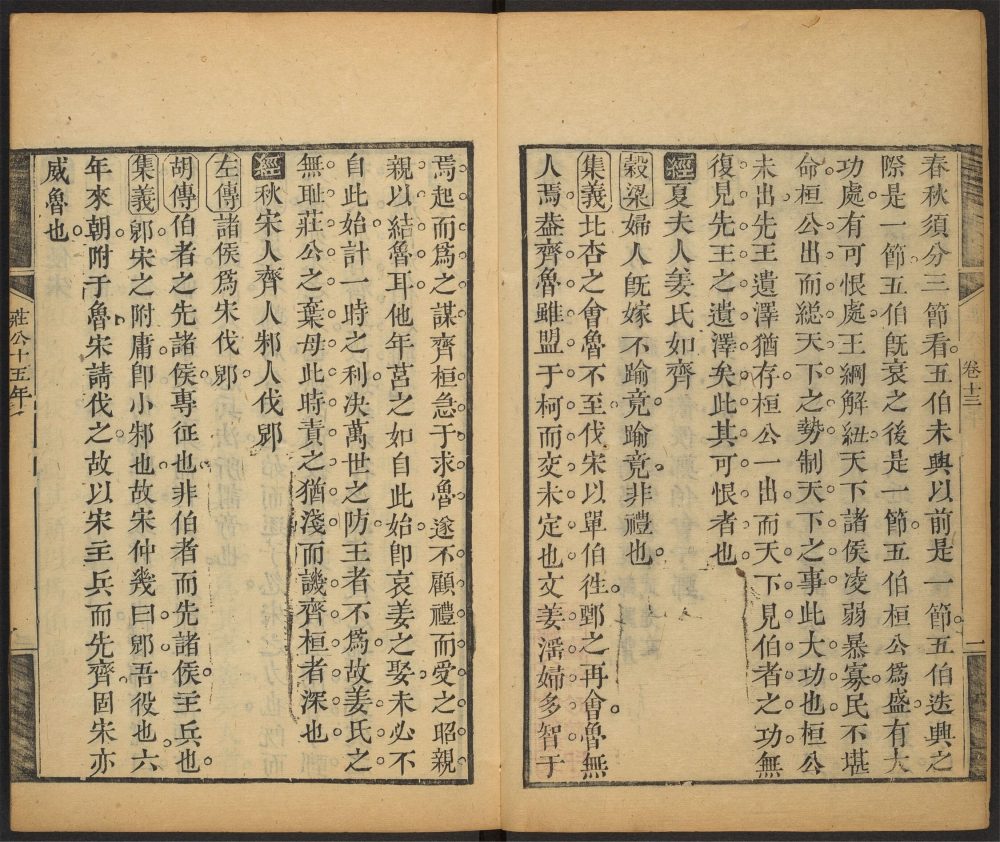 春秋須分三節看五伯未興以前是一節五伯迭興之
際是一節五伯旣衰之後是一節五伯桓公爲盛有大
功處有可恨處王綱解紐天下諸侯凌弱暴寡民不堪
命桓公出而總天下之勢制天下之事此大功也桓公
未出先王遺澤猶存桓公一出而天下見伯者之功無
復見先王之遺澤矣此其可恨者也
經夏夫人姜氏如齊
穀梁婦人旣嫁不踰竟踰竟非禮也
集義北杏之會魯不至伐宋以單伯徃鄄之再會魯無
人焉葢齊魯雖盟于柯而交未定也文姜淫婦多智于
卷十三
二
焉起而爲之謀齊桓急于求魯遂不顧禮而受之昭親
親以結魯耳他年莒之如自此始卽哀姜之娶未必不
自此始計一時之利决萬世之防王者不爲故姜氏之
無耻莊公之棄母此時責之猶淺而譏齊桓者深也
經秋宋人齊人邾人伐郳
左傳諸侯爲宋伐郳
胡傳伯者之先諸侯專征也非伯者而先諸侯主兵也
集義郳宋之附庸卽小邾也故宋仲幾曰郳吾役也六
年來朝附于魯宋請伐之故以宋主兵而先齊固宋亦
威魯也
莊公十五年